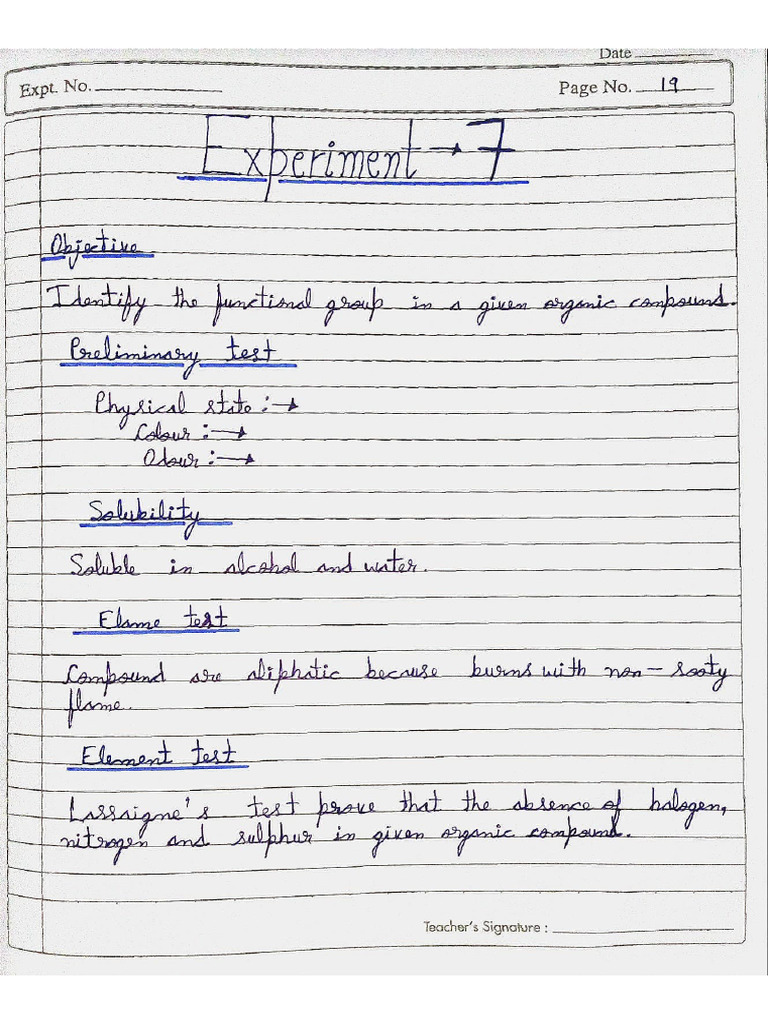 Date
Expt. No.
Page No. 19
Experiment → 7
Objective
Identify the functional group in a given organic compound.
Preliminary test
Physical state :→
Colour :→
Odour :→
Solubility
Soluble in alcohol and water.
Flame test
Compound are aliphatic because burns with non-sooty
flame.
Element test
Lassaigne's test prove that the absence of halogen,
nitrogen and sulphur in given organic compound.
Teacher's Signature :